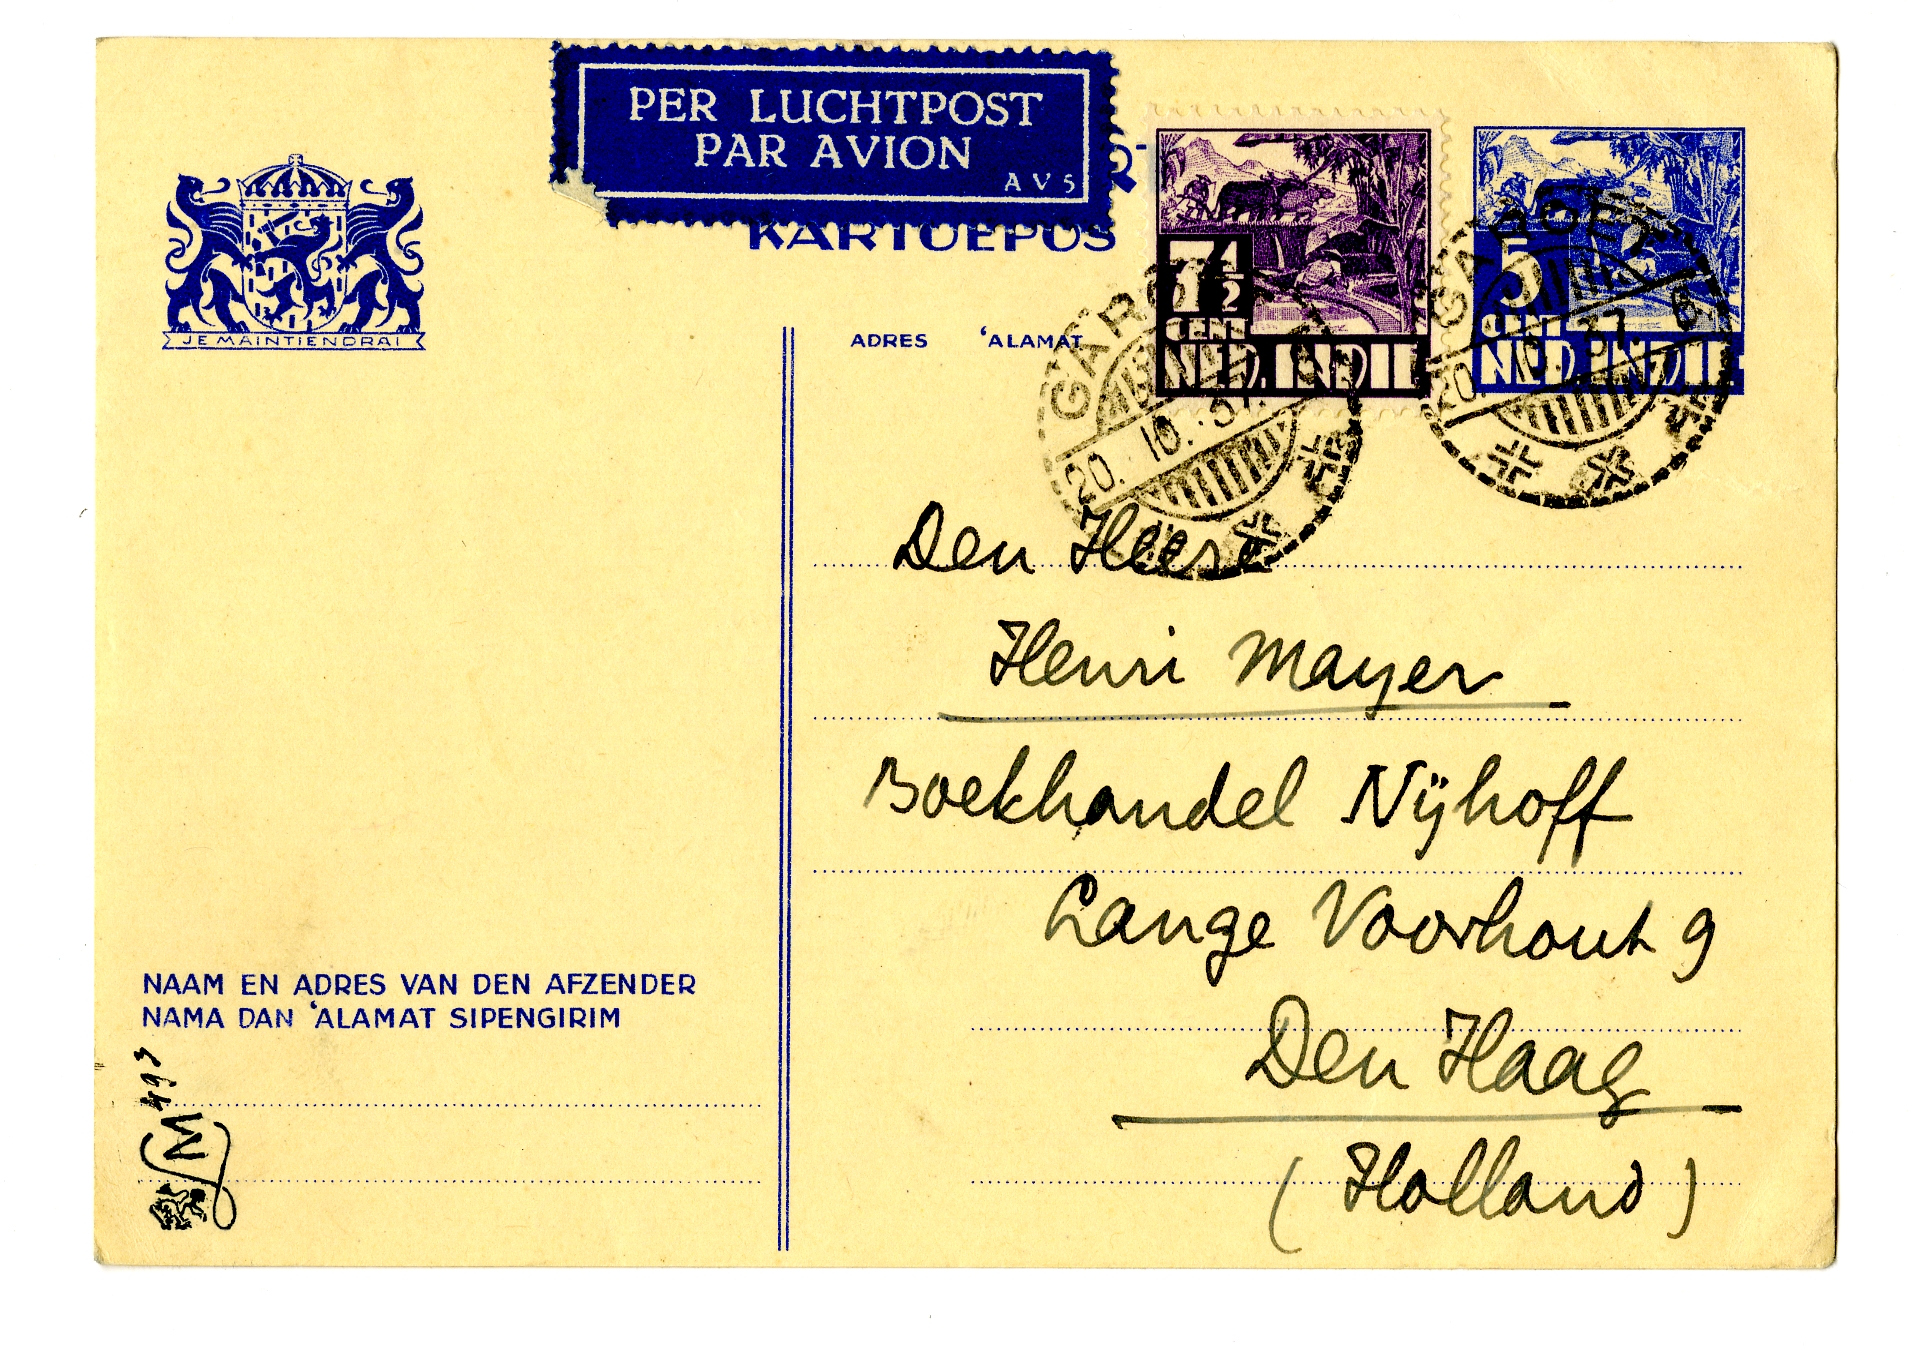 PER LUCHTPOST
PAR AVION
AV5
KARTOEPOS
JE MAINTIENDRAI
ADRES 'ALAMAT
7½
CENT
NED. INDIE
5
CENT
NED. INDIE
GAROET
20.10.37
GAROET
Den Heere
Henri Mayer
Boekhandel Nijhoff
Lange Voorhout 9
Den Haag
(Holland)
NAAM EN ADRES VAN DEN AFZENDER
NAMA DAN 'ALAMAT SIPENGIRIM
M